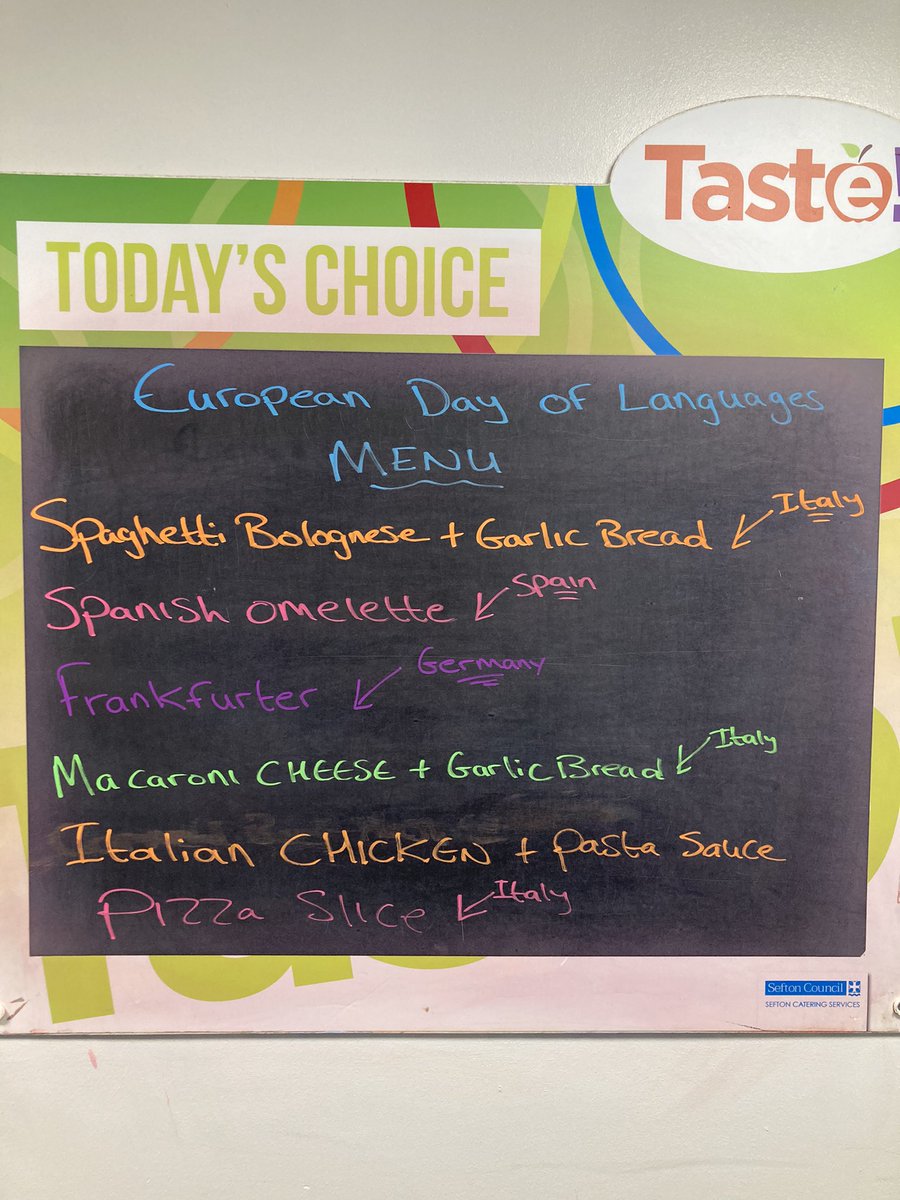 Taste!
TODAY'S CHOICE
European Day of Languages
MENU
Spaghetti Bolognese + Garlic Bread Italy
Spanish omelette Spain
Frankfurter Germany
Macaroni CHEESE + Garlic Bread Italy
Italian CHICKEN + Pasta Sauce
Pizza Slice Italy
Sefton Council
SEFTON CATERING SERVICES